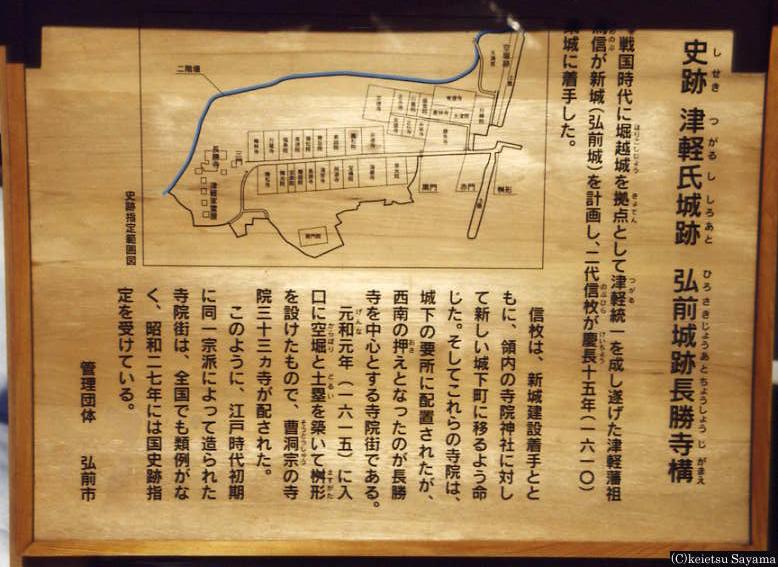 史跡 津軽氏城跡 弘前城跡長勝寺構
しせき つがるししろあと ひろさきじょうあとちょうしょうじがまえ
戦国時代に堀越城を拠点として津軽統一を成し遂げた津軽藩祖
為信が新城（弘前城）を計画し、二代信枚が慶長十五年（一六一〇）
築城に着手した。
信枚は、新城建設着手とと
もに、領内の寺院神社に対し
て新しい城下町に移るよう命
じた。そしてこれらの寺院は、
城下の要所に配置されたが、
西南の押えとなったのが長勝
寺を中心とする寺院街である。
元和元年（一六一五）に入
口に空堀と土塁を築いて桝形
を設けたもので、曹洞宗の寺
院三十三ヵ寺が配された。
このように、江戸時代初期
に同一宗派によって造られた
寺院街は、全国でも類例がな
く、昭和二七年には国史跡指
定を受けている。
管理団体 弘前市
史跡指定範囲図
二階堰
空堀跡
長勝寺
三門
津軽家霊屋
黒門
赤門
桝形
(C)keietsu Sayama